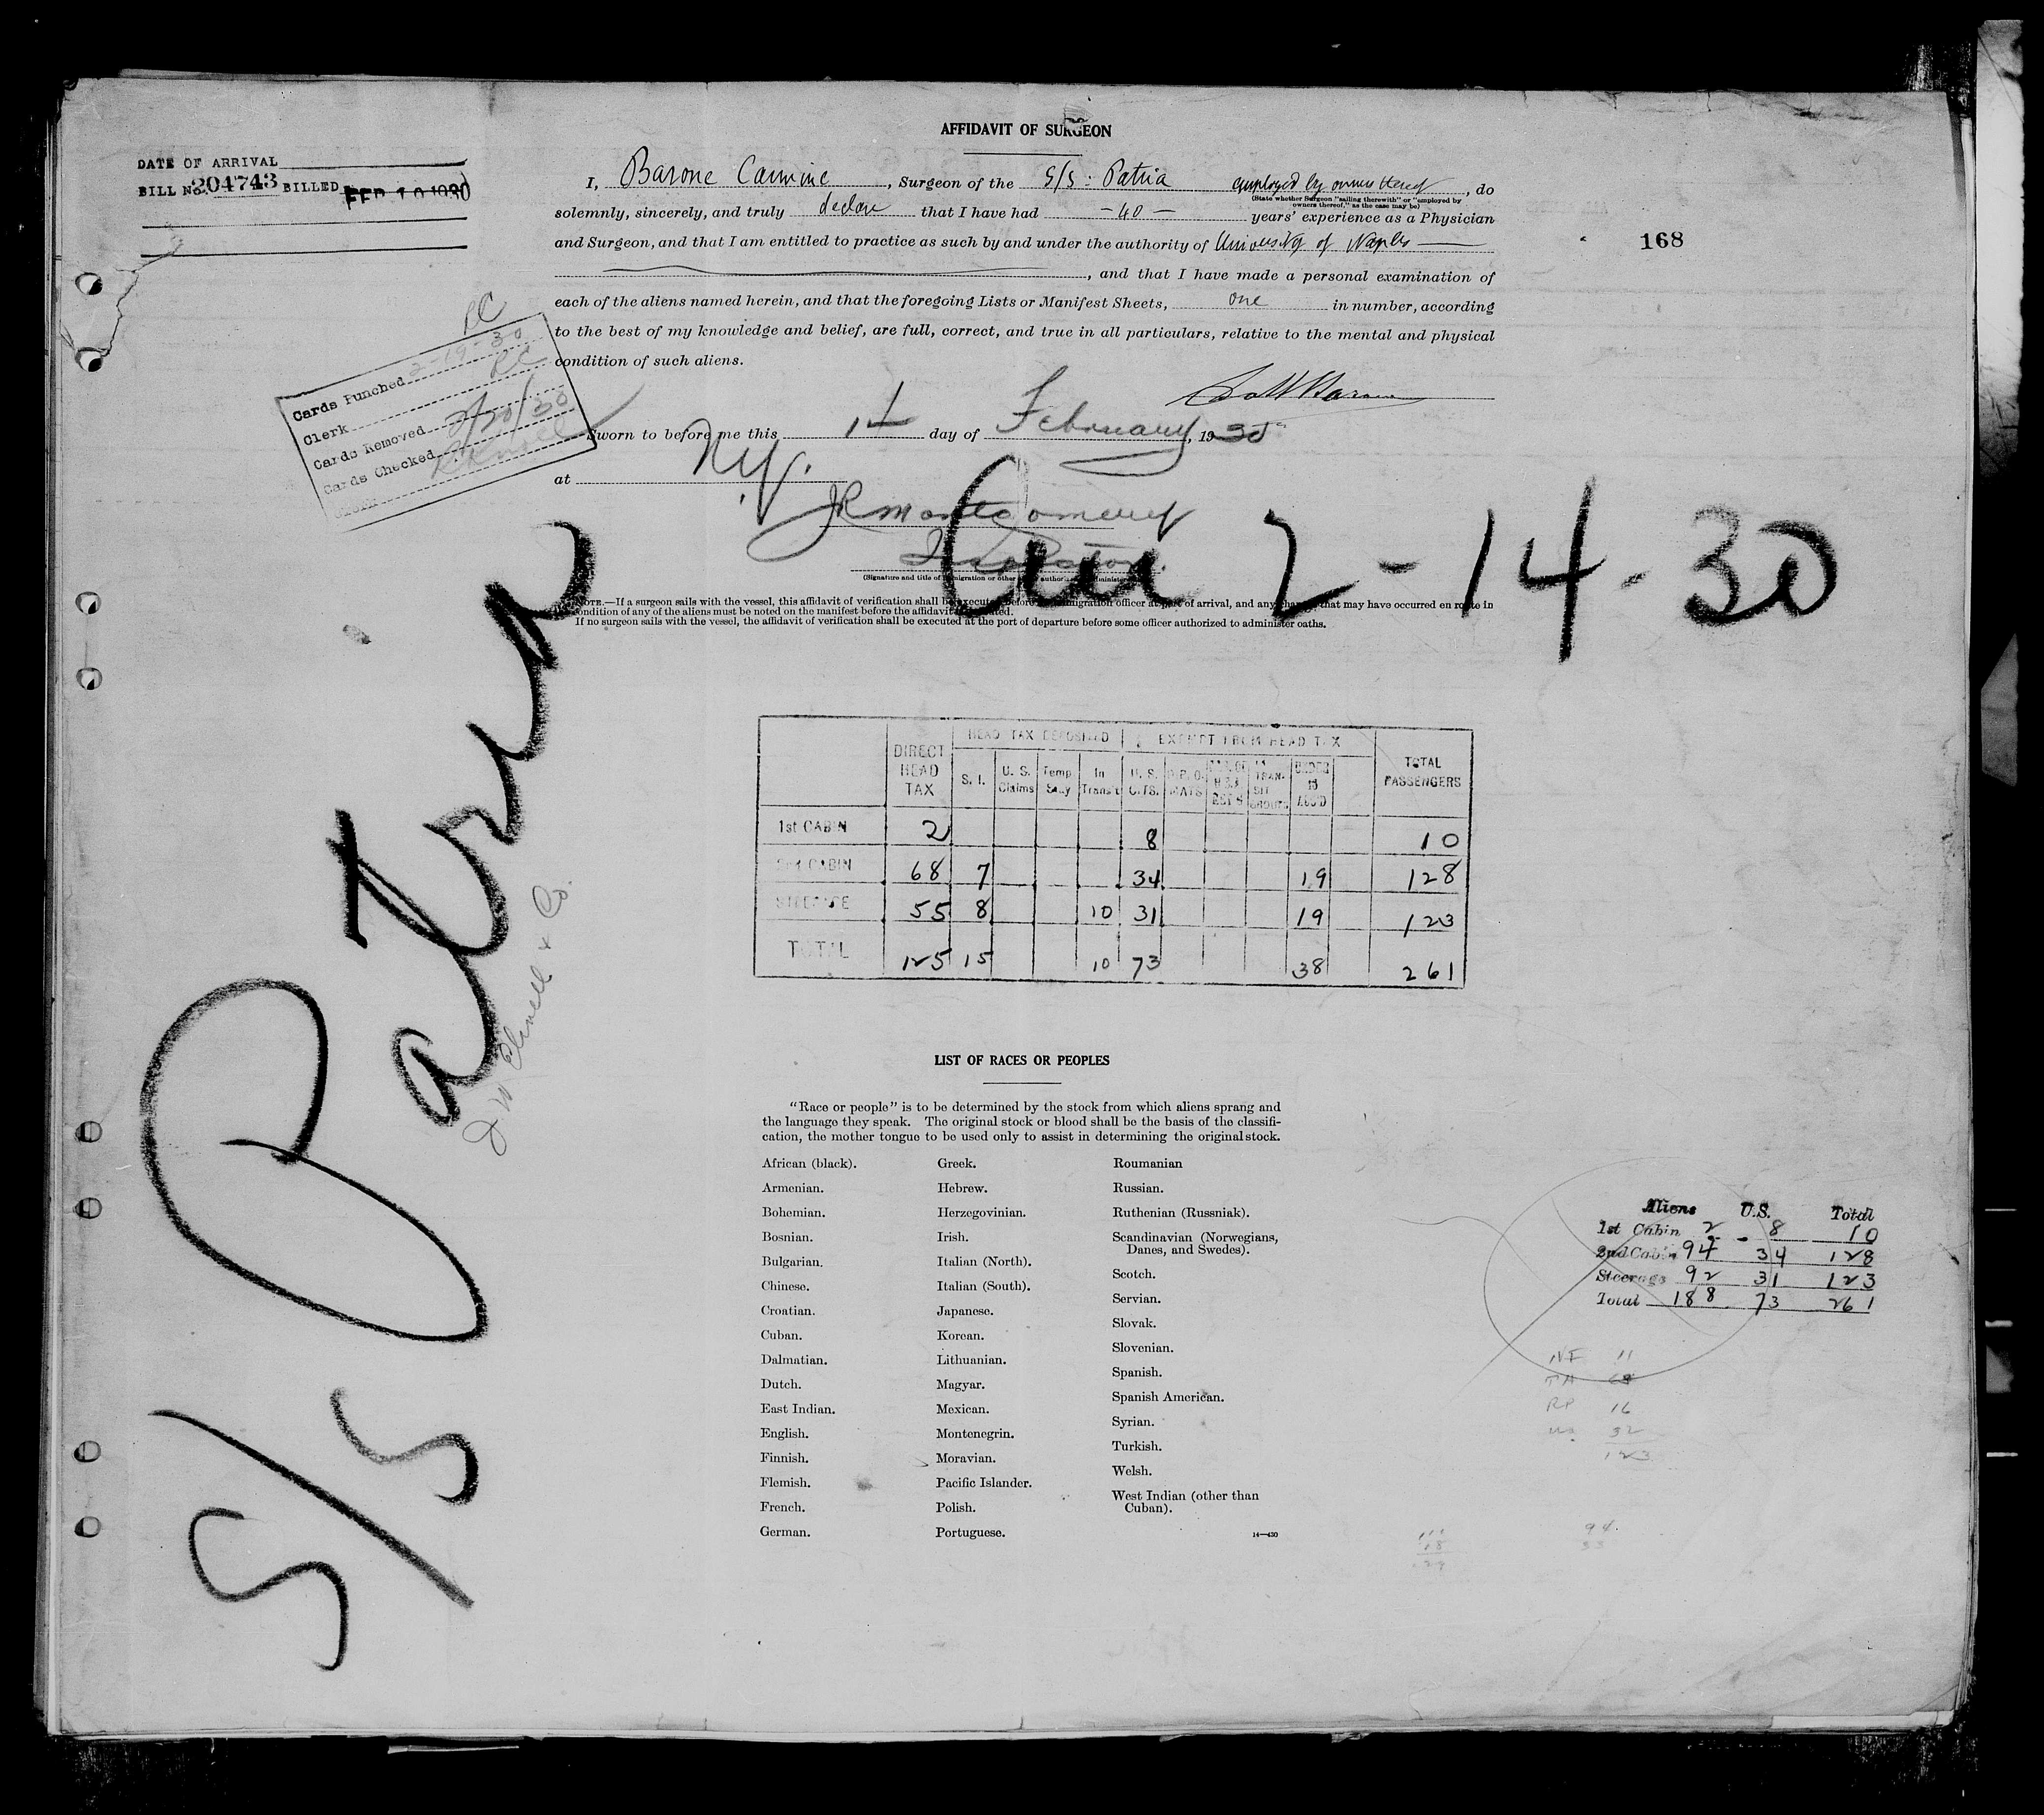 AFFIDAVIT OF SURGEON
DATE OF ARRIVAL
BILL No. 204743 BILLED FEB 10 1930
I, Barone Carmine, Surgeon of the S/S: Patria employed by owners thereof, do
(State whether Surgeon "sailing therewith" or "employed by
owners thereof," as the case may be)
solemnly, sincerely, and truly declare that I have had -40- years' experience as a Physician
and Surgeon, and that I am entitled to practice as such by and under the authority of University of Naples
, and that I have made a personal examination of
each of the aliens named herein, and that the foregoing Lists or Manifest Sheets, one in number, according
to the best of my knowledge and belief, are full, correct, and true in all particulars, relative to the mental and physical
condition of such aliens.
168
RC
Cards Punched 2-19-30
Clerk RC
Cards Removed 2/20/30
Cards Checked
Clerk
Sworn to before me this 14 day of February, 1930
at N.Y.
JR Montgomery
Inspector.
(Signature and title of immigration or other
2-14-30
NOTE.—If a surgeon sails with the vessel, this affidavit of verification shall be executed before immigration officer at port of arrival, and any change that may have occurred en route in
condition of any of the aliens must be noted on the manifest before the affidavit
If no surgeon sails with the vessel, the affidavit of verification shall be executed at the port of departure before some officer authorized to administer oaths.
S/S Patria
& Co.
DIRECT HEAD TAX HEAD TAX DEPOSITED EXEMPT FROM HEAD TAX TOTAL PASSENGERS
S. I. U. S. Claims Temp. Stay In Transit U. S. CITS. UNDER 16
1st CABIN 2 8 10
2nd CABIN 68 7 34 19 128
STEERAGE 55 8 10 31 19 123
TOTAL 125 15 10 73 38 261
LIST OF RACES OR PEOPLES
"Race or people" is to be determined by the stock from which aliens sprang and
the language they speak. The original stock or blood shall be the basis of the classifi-
cation, the mother tongue to be used only to assist in determining the original stock.
African (black).
Armenian.
Bohemian.
Bosnian.
Bulgarian.
Chinese.
Croatian.
Cuban.
Dalmatian.
Dutch.
East Indian.
English.
Finnish.
Flemish.
French.
German.
Greek.
Hebrew.
Herzegovinian.
Irish.
Italian (North).
Italian (South).
Japanese.
Korean.
Lithuanian.
Magyar.
Mexican.
Montenegrin.
Moravian.
Pacific Islander.
Polish.
Portuguese.
Roumanian
Russian.
Ruthenian (Russniak).
Scandinavian (Norwegians,
Danes, and Swedes).
Scotch.
Servian.
Slovak.
Slovenian.
Spanish.
Spanish American.
Syrian.
Turkish.
Welsh.
West Indian (other than
Cuban).
14—430
Aliens U.S. Total
1st Cabin 2 - 8 10
2nd Cabin 94 34 128
Steerage 92 31 123
Total 188 73 261
11
RP 16
32
123
94